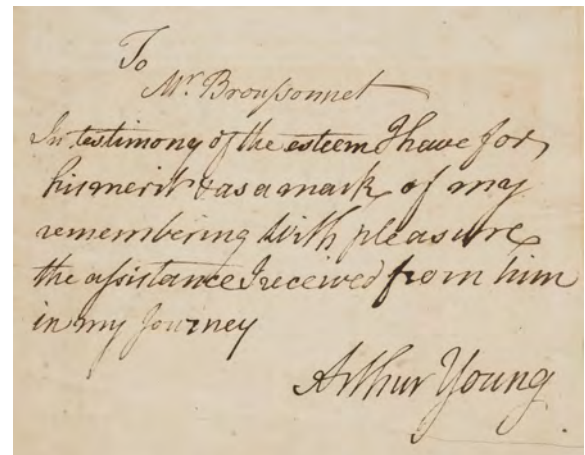 To
Mr. Broussonnet
In testimony of the esteem I have for
his merit & as a mark of my
remembering with pleasure
the assistance I received from him
in my Journey
Arthur Young